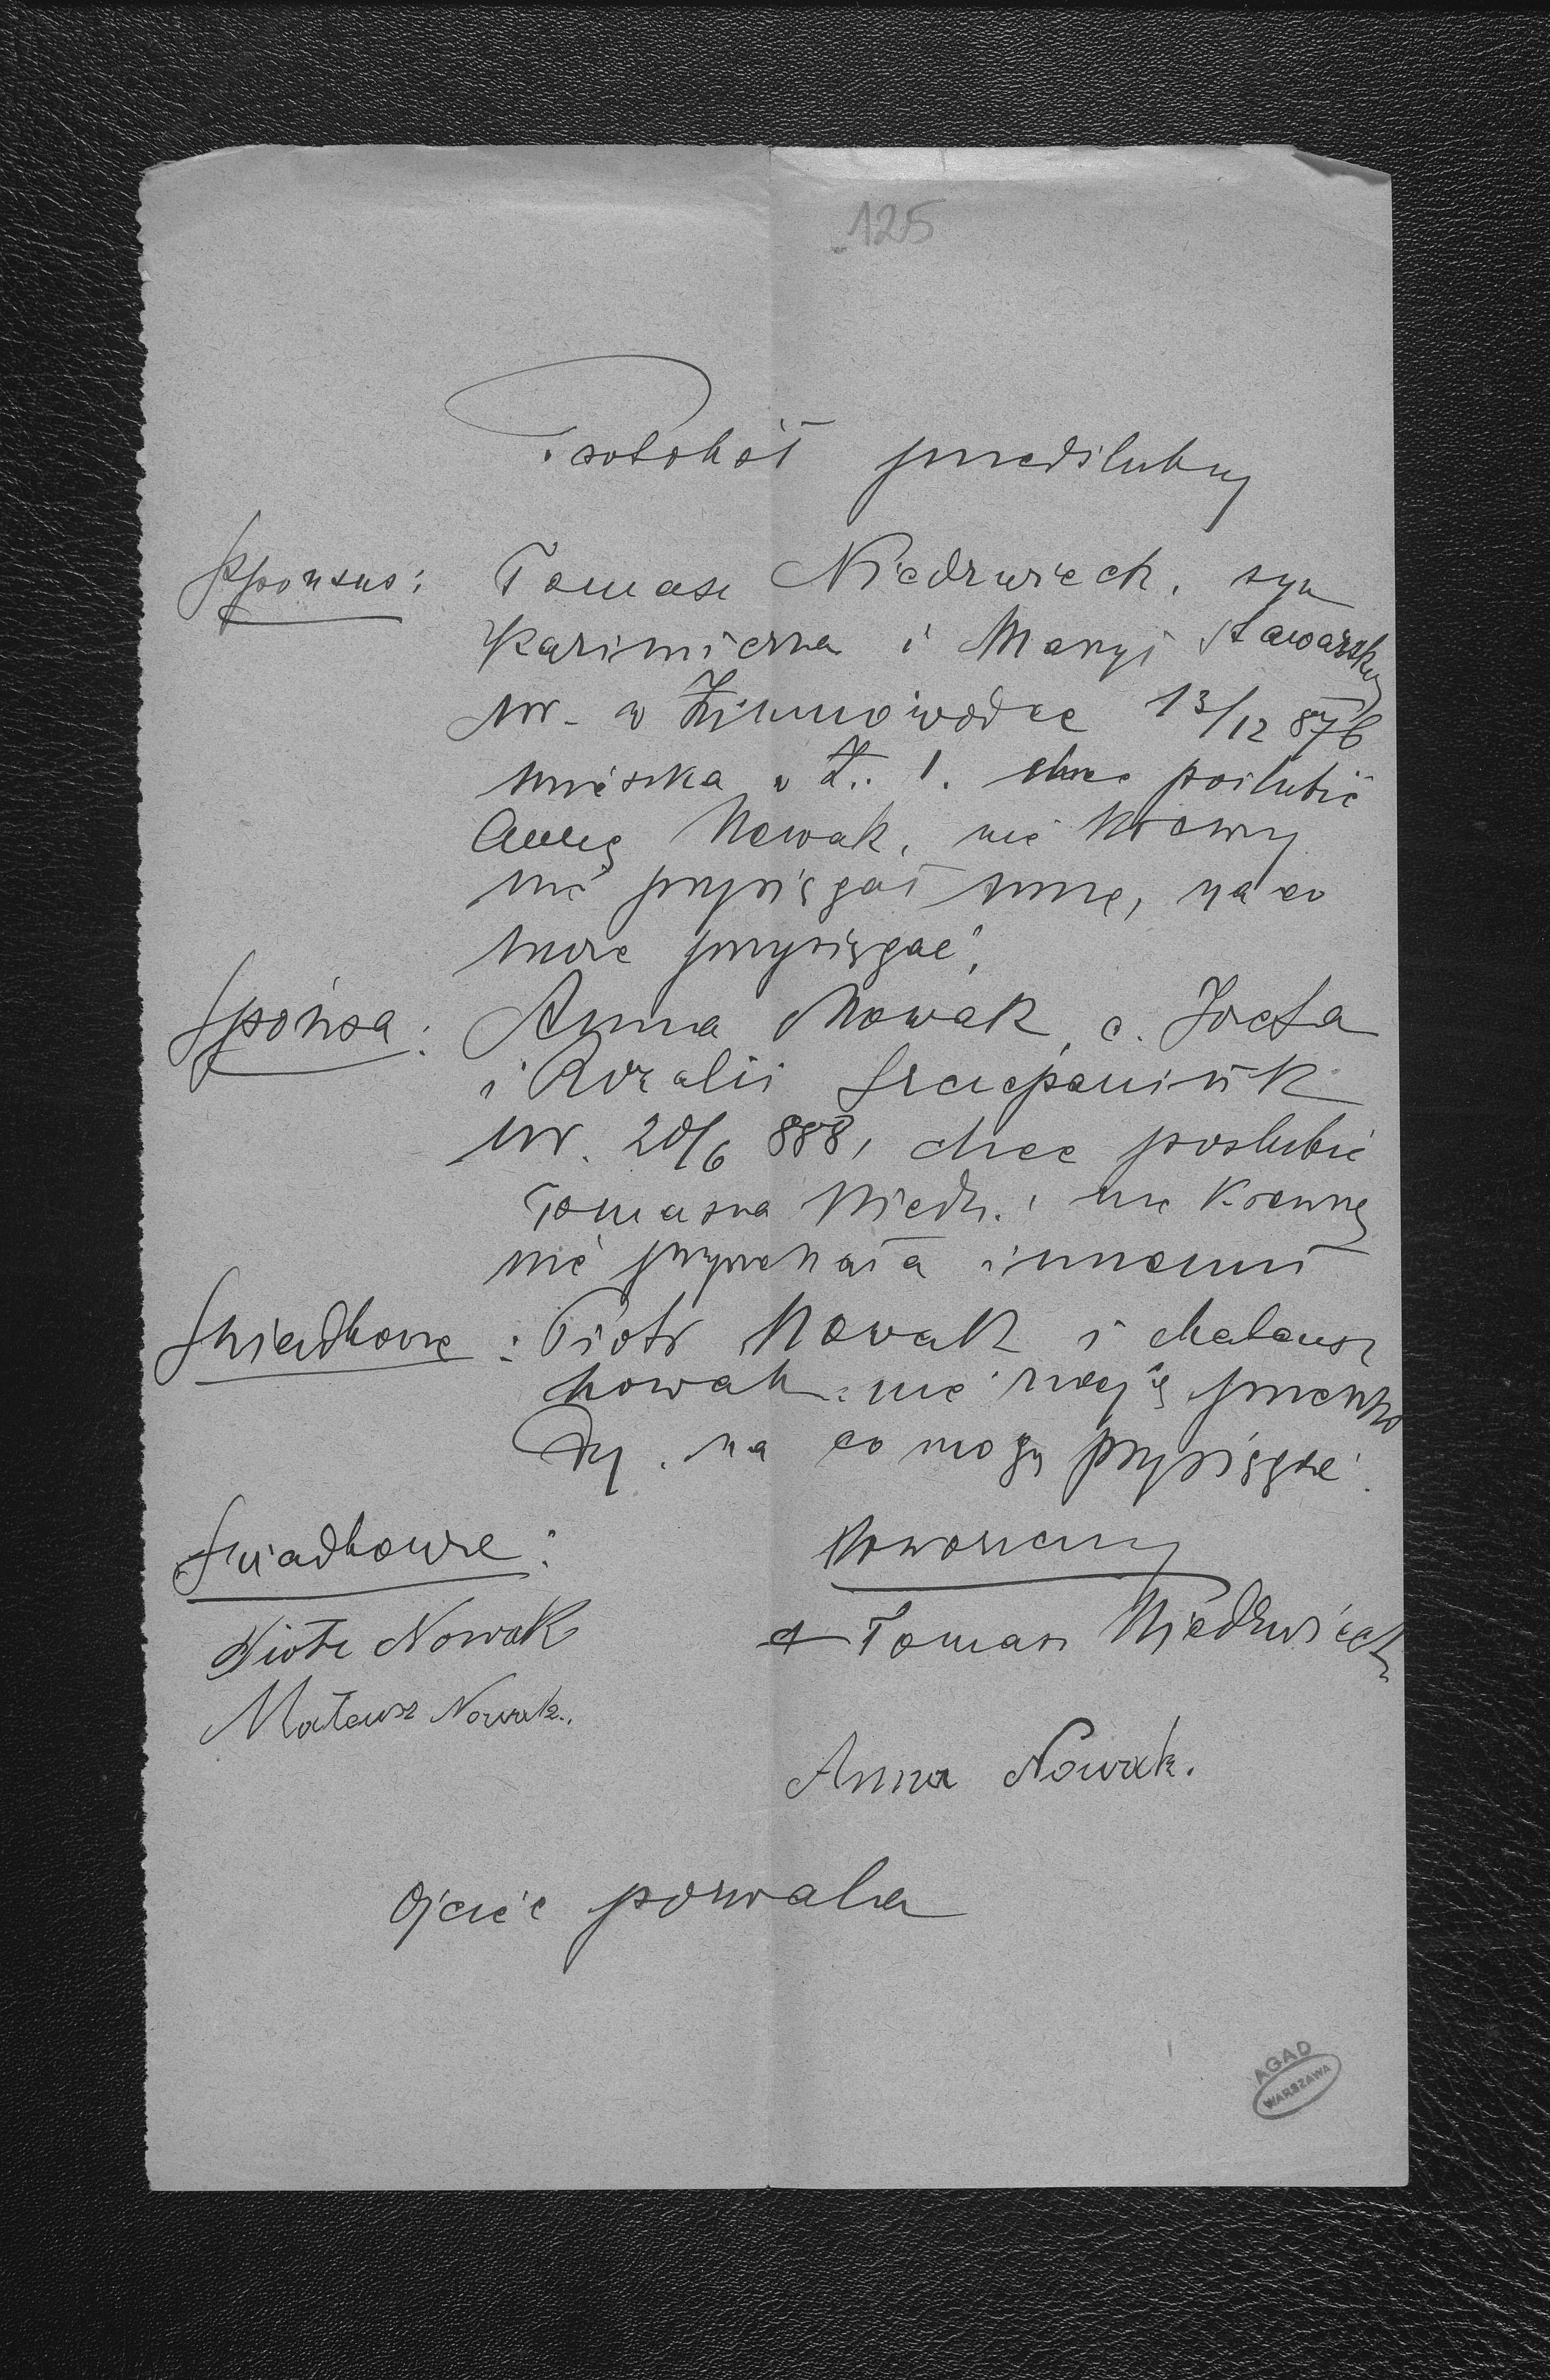 125
Protokół przedślubny
Sponsus: Tomasz Niedzwiecki, syn
Kazimierza i Maryi Stawarskiej
ur. w Zimnowodce 13/12 876
mieszka w Z. l. chce poślubić
Annę Nowak, nie krewny
nie przysięgał innej, na co
może przysięgać.
Sponsa: Anna Nowak, c. Józefa
i Rozalii Szczepaniuk
ur. 20/6 888, chce poslubić
Tomasza Niedz. nie krewny
nie przyrzekała innemu
Swiadkowie: Piotr Nowak i Mateusz
Nowak nie znają przeszko
dy, na co mogą przysięgać.
Swiadkowie: Nowożeńcy
Piotr Nowak + Tomasz Niedzwiecki
Mateusz Nowak.
Anna Nowak.
Ojciec pozwala
AGAD
WARSZAWA